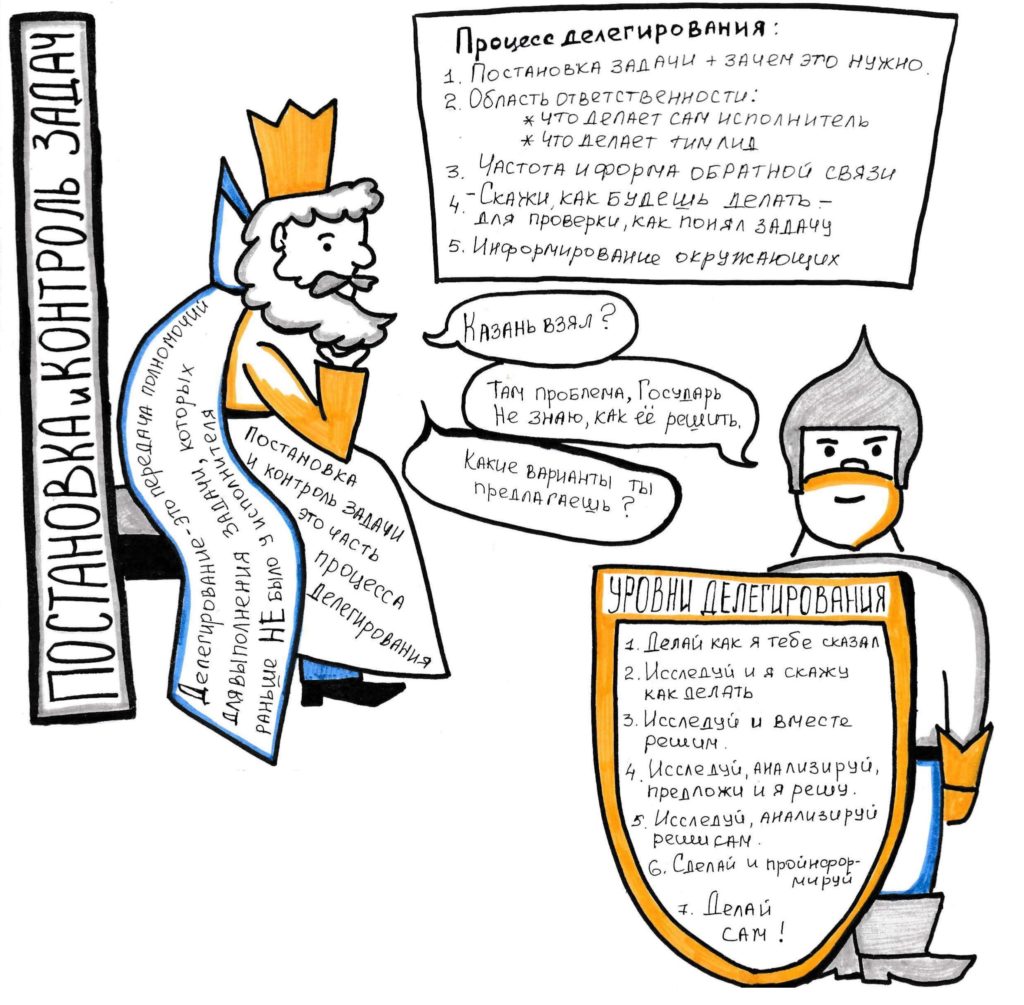 ПОСТАНОВКА и КОНТРОЛЬ ЗАДАЧ
Процесс делегирования:
1. Постановка задачи + зачем это нужно.
2. Область ответственности:
* что делает сам исполнитель
* что делает тим лид
3. Частота и форма обратной связи
4. - Скажи, как будешь делать -
для проверки, как понял задачу
5. Информирование окружающих
Казань взял?
Там проблема, Государь
Не знаю, как её решить.
Какие варианты ты
предлагаешь?
Делегирование - это передача полномочий
для выполнения задачи, которых
раньше НЕ было у исполнителя
Постановка
и контроль задачи
это часть
процесса
делегирования
УРОВНИ ДЕЛЕГИРОВАНИЯ
1. Делай как я тебе сказал
2. Исследуй и я скажу
как делать
3. Исследуй и вместе
решим.
4. Исследуй, анализируй,
предложи и я решу.
5. Исследуй, анализируй
реши сам.
6. Сделай и проинфор-
мируй
7. Делай
сам!